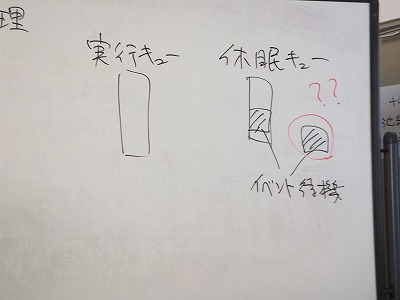 理
実行キュー
休眠キュー
??
イベント待機